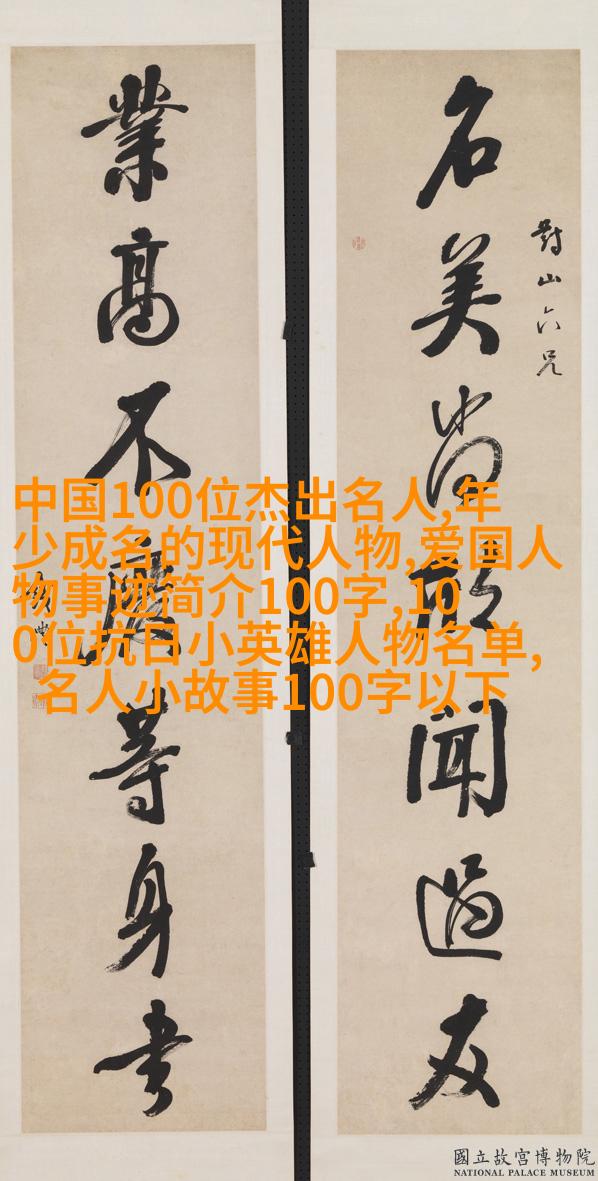 對山六兄
名美尚欣聞過友
業高不廢等身書
中国100位杰出名人,年
少成名的现代人物,爱国人
物事迹简介100字,10
0位抗日小英雄人物名单,
名人小故事100字以下
國立故宮博物院
NATIONAL PALACE MUSEUM